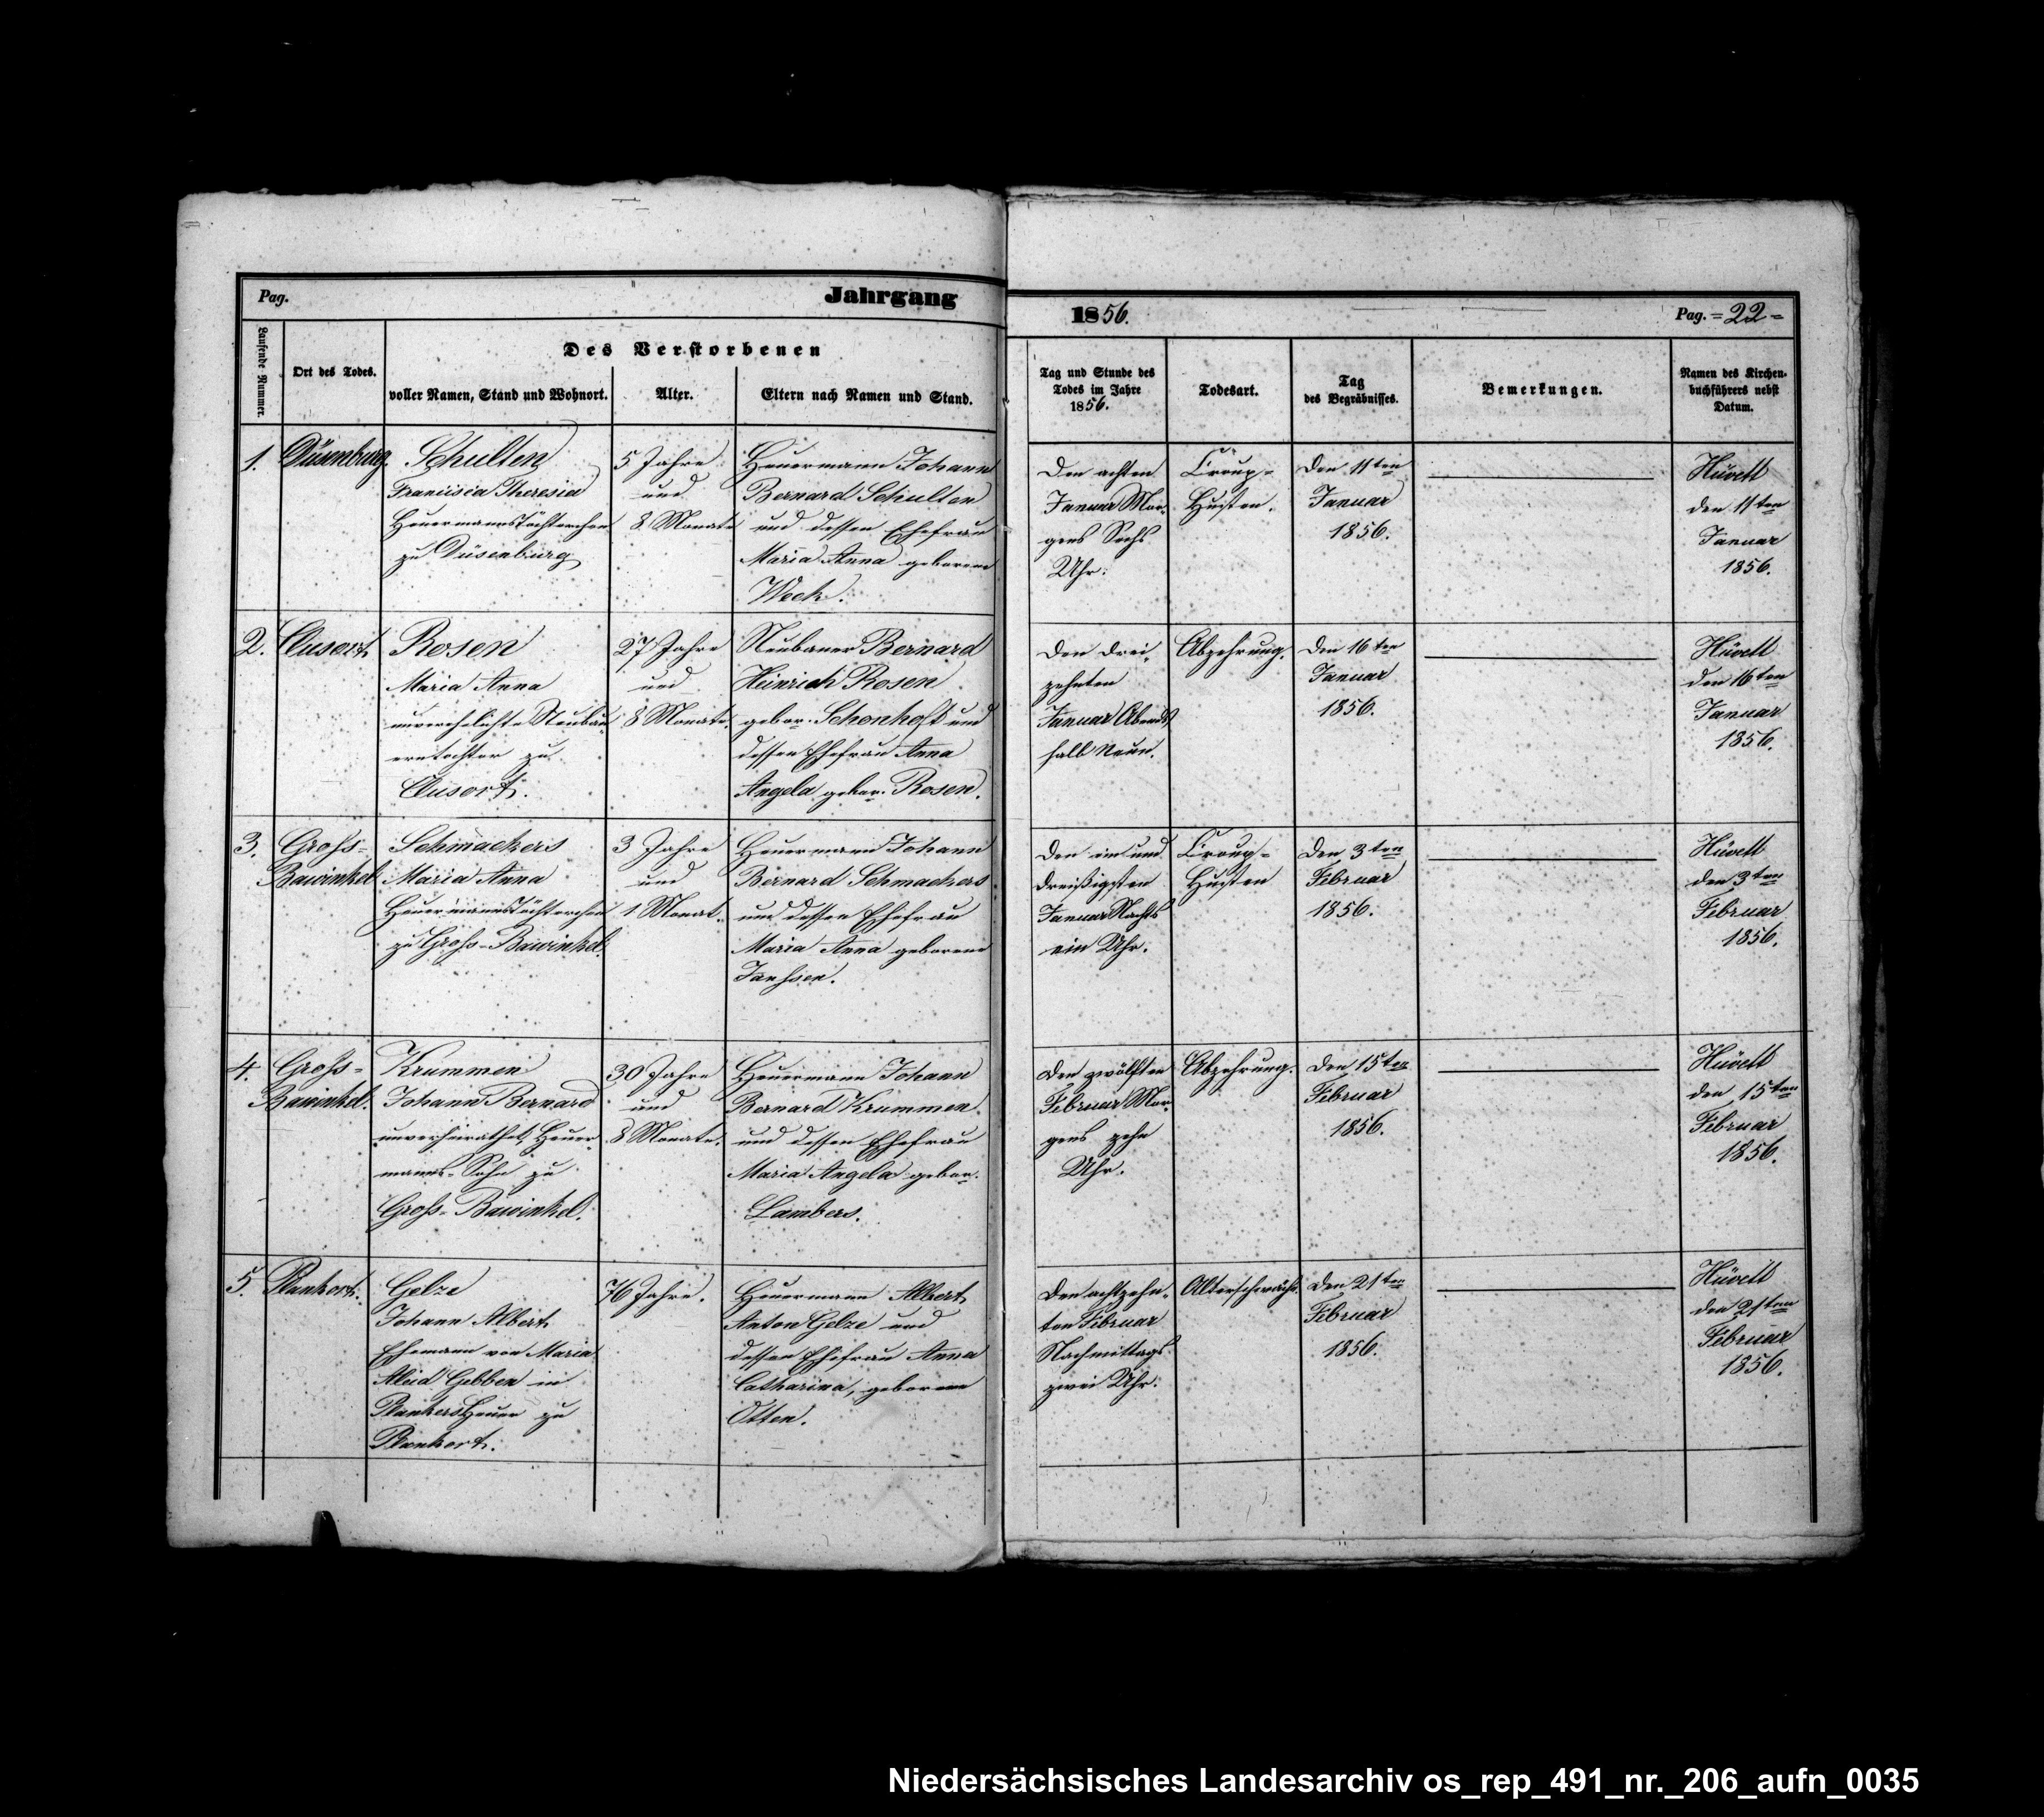 Pag.
Jahrgang
1856.
Pag. = 22 =
Laufende Nummer.
Ort des Todes.
Des Verstorbenen
voller Namen, Stand und Wohnort.
Alter.
Eltern nach Namen und Stand.
Tag und Stunde des
Todes im Jahre
1856.
Todesart.
Tag
des Begräbnisses.
Bemerkungen.
Namen des Kirchen-
buchführers nebst
Datum.
1.
Düsenburg.
Schulten
Francisca Theresia
Heuermannstöchterchen
zu Düsenburg
5 Jahre
und
8 Monate
Heuermann Johann
Bernard Schulten
und dessen Ehefrau
Maria Anna geborene
Week.
Den achten
Januar Mor-
gens Sechs
Uhr.
Croup-
Husten.
Den 11ten
Januar
1856.
Hüvett
den 11ten
Januar
1856.
2.
Clusort
Rosen
Maria Anna
unverehelichte Neubau-
erntochter zu
Clusort.
27 Jahre
und
8 Monate.
Neubauer Bernard
Heinrich Rosen
gebor. Schonhoft und
dessen Ehefrau Anna
Angela gebor. Rosen.
Den drei-
zehnten
Januar Abends
halb Neun.
Abzehrung.
Den 16ten
Januar
1856.
Hüvett
den 16ten
Januar
1856.
3.
Groß-
Bawinkel
Schmackers
Maria Anna
Heuermannstöchterchen
zu Groß-Bawinkel.
3 Jahre
und
1 Monat.
Heuermann Johann
Bernard Schmackers
und dessen Ehefrau
Maria Anna geborene
Janßen.
Den ein und
dreißigsten
Januar Nachts
ein Uhr.
Croup-
Husten
Den 3ten
Februar
1856.
Hüvett
den 3ten
Februar
1856.
4.
Groß-
Bawinkel.
Krummen
Johann Bernard
unverheirathet, Heuer-
manns-Sohn zu
Groß-Bawinkel.
30 Jahre
und
8 Monate.
Heuermann Johann
Bernard Krummen
und dessen Ehefrau
Maria Angela gebor.
Lambers.
Den zwölften
Februar Mor-
gens zehn
Uhr.
Abzehrung.
Den 15ten
Februar
1856.
Hüvett
den 15ten
Februar
1856.
5.
Plankort.
Gelze
Johann Albert
Ehemann von Maria
Aleid Gebben in
Plankers Heuer zu
Plankort.
76 Jahre.
Heuermann Albert
Anton Gelze und
dessen Ehefrau Anna
Catharina, geborene
Otten.
Den achtzehn-
ten Februar
Nachmittags
zwei Uhr.
Altersschwäche.
Den 21ten
Februar
1856.
Hüvett
den 21ten
Februar
1856.
Niedersächsisches Landesarchiv os_rep_491_nr._206_aufn_0035